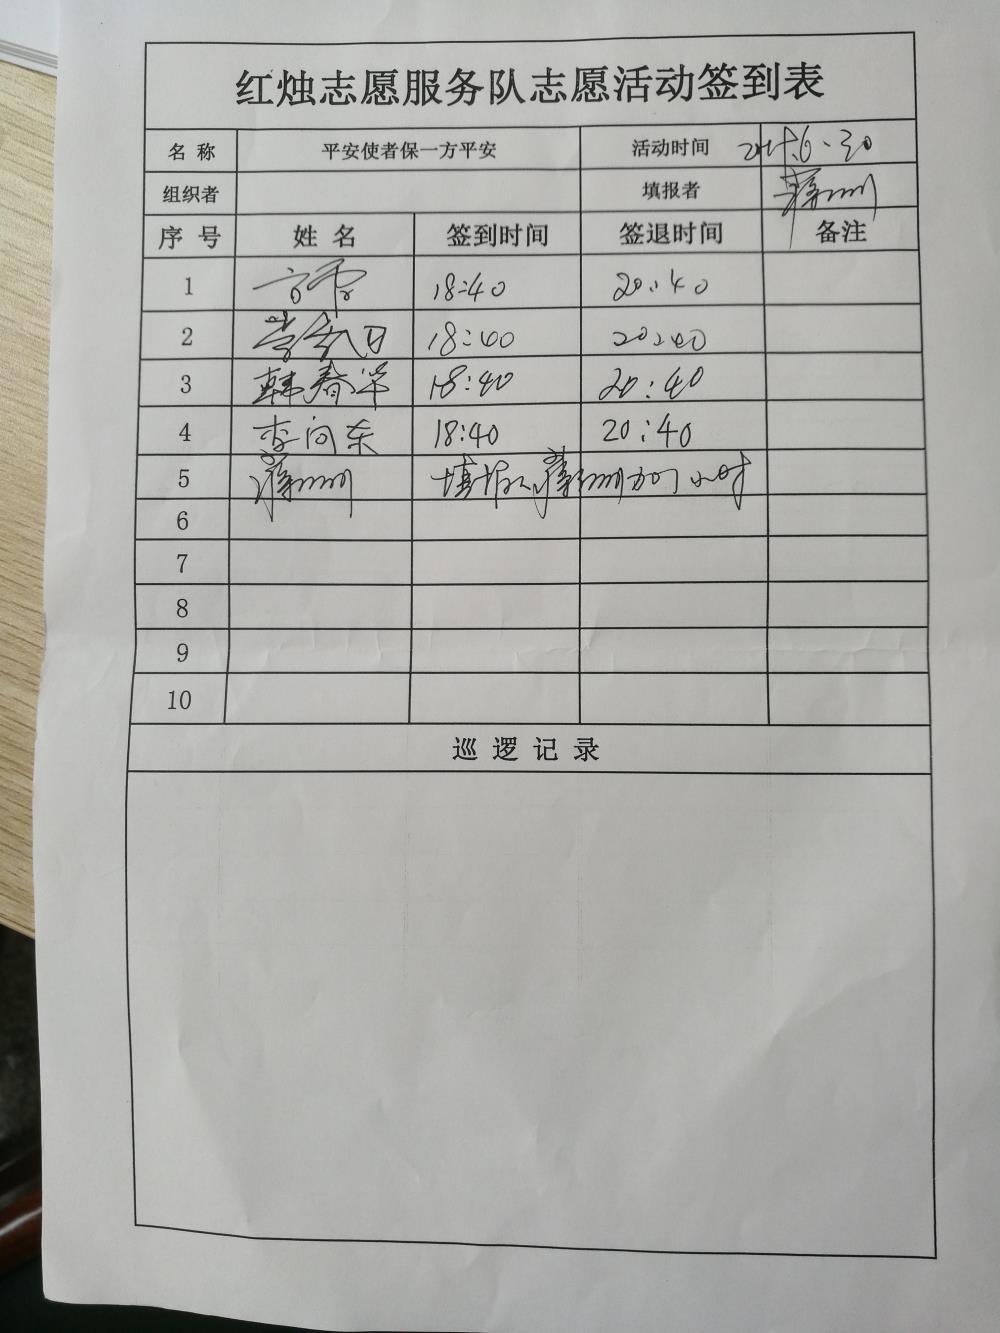 红烛志愿服务队志愿活动签到表
名 称 平安使者保一方平安 活动时间 6.30
组织者 填报者
序 号 姓 名 签到时间 签退时间 备注
1 18:40 20:40
2 18:40 20:40
3 韩春华 18:40 20:40
4 李向东 18:40 20:40
5 填报人 小时
6
7
8
9
10
巡 逻 记 录